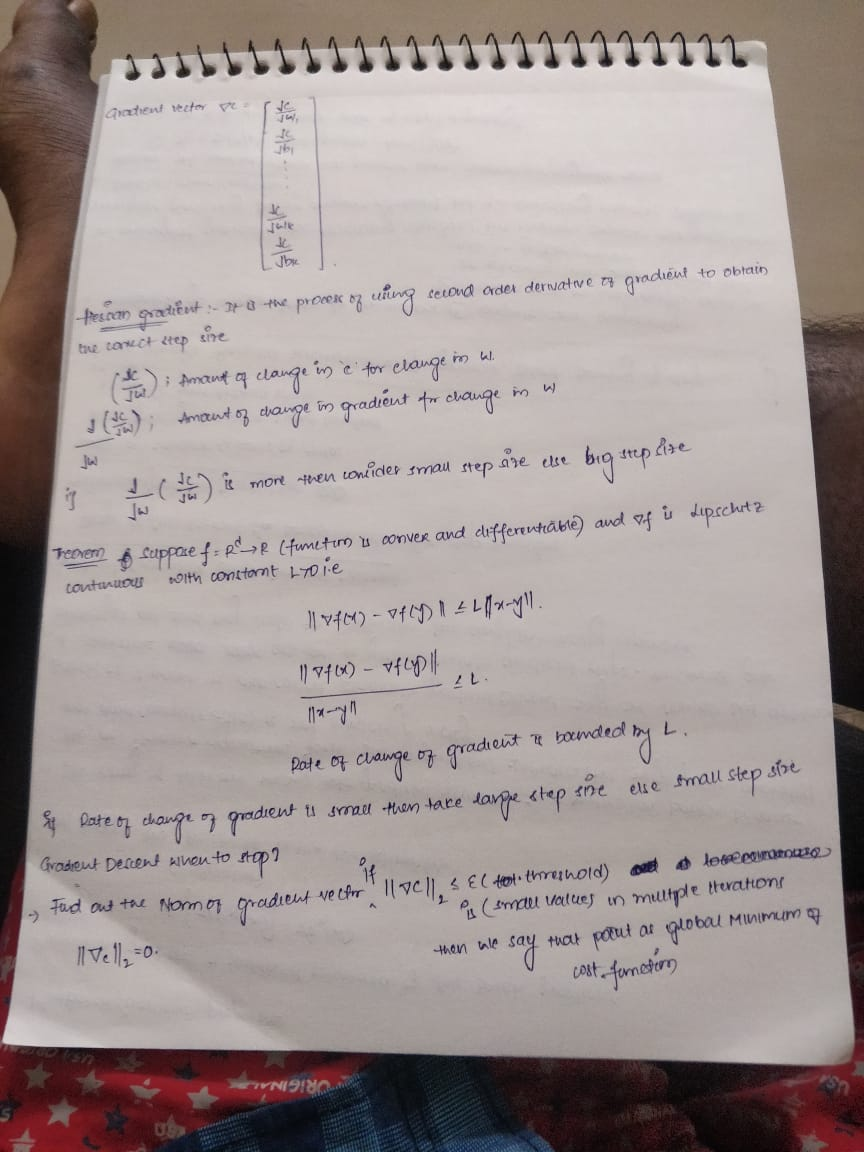 Gradient vector ∇c = [ δc/δw₁
δc/δb₁
......
δc/δwk
δc/δbk ].
Hessian gradient :- It is the process of using second order derivative of gradient to obtain
the correct step size
(δc/δw) ; Amount of change in 'c' for change in w.
δ(δc/δw)/δw ; Amount of change in gradient for change in w
if δ/δw (δc/δw) is more then consider small step size else big step size
Theorem suppose f = R^d → R (function is convex and differentiable) and ∇f is Lipschitz
continuous with constant L>0 i.e
||∇f(x) - ∇f(y)|| ≤ L||x-y||.
||∇f(x) - ∇f(y)|| / ||x-y|| ≤ L.
Rate of change of gradient is bounded by L.
if Rate of change of gradient is small then take large step size else small step size
Gradient Descent when to stop?
→ Fid out the Norm of gradient vector, if ||∇c||₂ ≤ ε( tol. threshold)
is (small values in multiple iterations
||∇c||₂ = 0.
then we say that point as global Minimum of
cost function
ORIGINAL